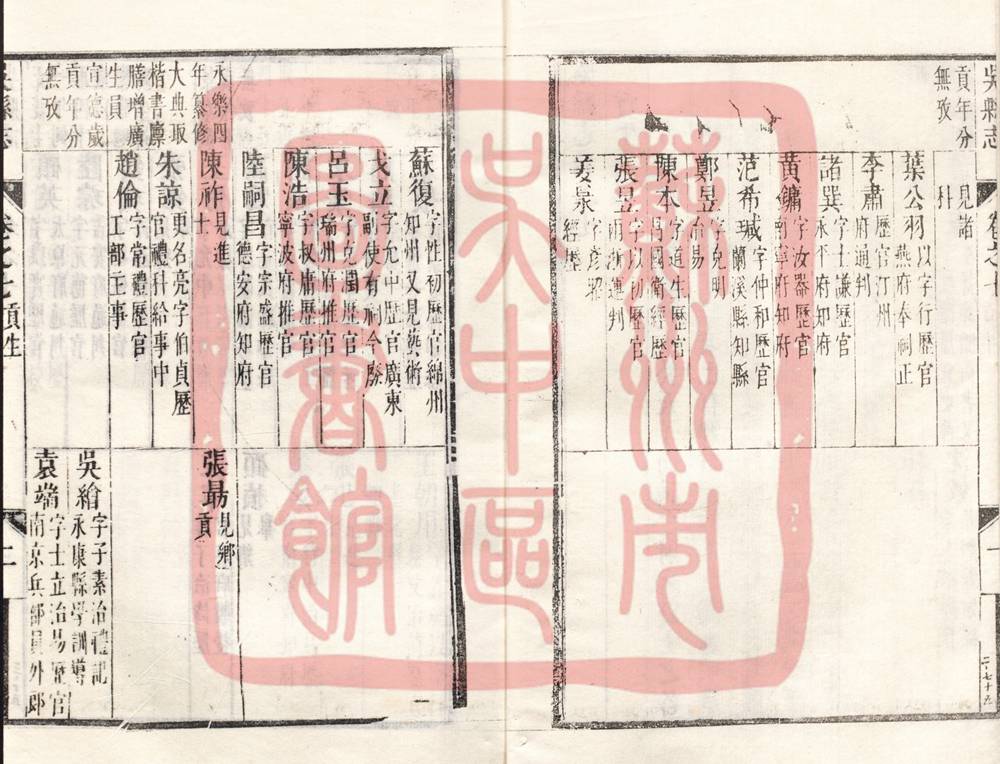 吳縣志
貢年分
無攷
見諸
科
葉公羽 以字行歷官
燕府奉祠正
李肅 歷官汀州
府通判
諸巽 字士謙歷官
永平府知府
黃鏞 字汝器歷官
南寧府知府
范希瑊 字仲和歷官
蘭溪縣知縣
鄭昱 字克明
陳本 字道生歷官
張昱 字以
姜泉 字彥
經歷
蘇州市
吳中區
圖書館
蘇復 字性初歷官綿州
知州又見藝術
戈立 字允中歷官廣東
副使有祠今廢
呂玉 字克潤歷官
瑞州府推官
陳浩 字叔庸歷官
寧波府推官
陸嗣昌 字宗盛歷官
德安府知府
永樂四
年纂修
大典取
楷書廩
膳增廣
生員
陳祚 見進
士
張昜 見鄉
貢
朱諒 更名亮字伯貞歷
官禮科給事中
趙倫 字常禮歷官
工部主事
宣德歲
貢年分
無攷
吳繪 字子素治禮記
永康縣學訓導
袁端 字士立治易歷官
南京兵部員外郎
吳縣志
卷之七 貢生
一